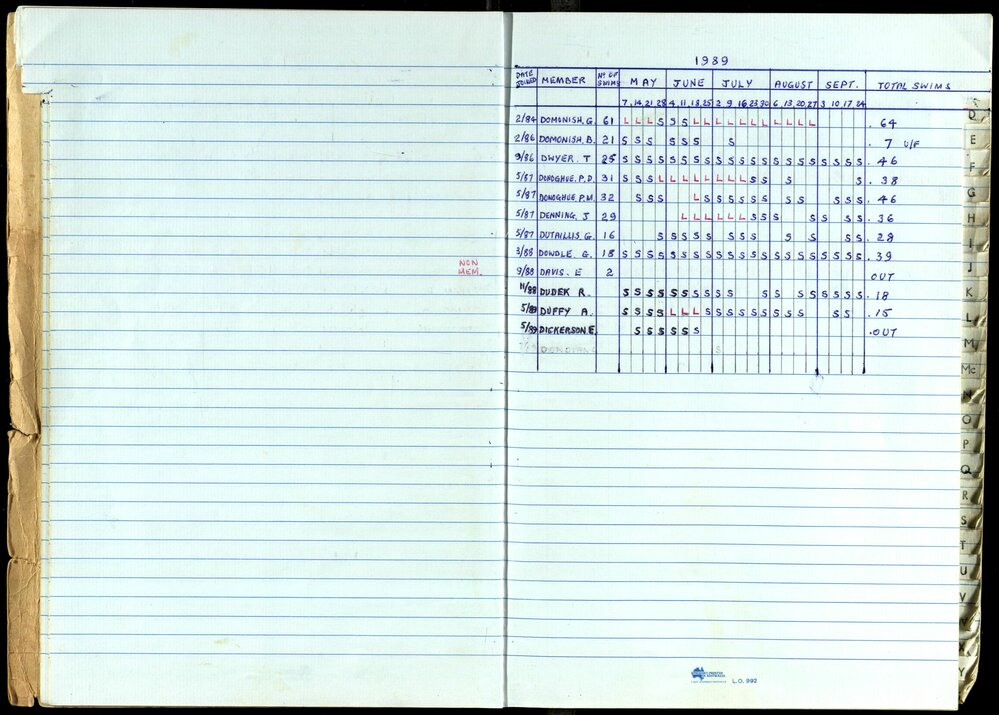 1989
DATE JOINED MEMBER Nº OF SWIMS MAY JUNE JULY AUGUST SEPT. TOTAL SWIMS
7 14 21 28 4 11 18 25 2 9 16 23 30 6 13 20 27 3 10 17 24
2/84 DOMONISH, G. 61 L L L S S S L L L L L L L L L L L . 64
2/86 DOMONISH, B. 21 S S S S S S S . 7 U/F
9/86 DWYER. T 25 S S S S S S S S S S S S S S S S S S S S S . 46
5/87 DONOGHUE, P.D. 31 S S S L L L L L L L L S S S S . 38
5/87 DONOGHUE, P.M. 32 S S S L S S S S S S S S S S S . 46
5/87 DENNING, J 29 L L L L L L S S S S S S S . 36
5/87 DUTAILLIS, G. 16 S S S S S S S S S S S S . 28
3/88 DONDLE. G. 18 S S S S S S S S S S S S S S S S S S S S S . 39
NON MEM. 9/88 DAVIS. E 2 OUT
11/88 DUDEK R. S S S S S S S S S S S S S S S S S S . 18
5/89 DUFFY A. S S S S L L L S S S S S S S S S S S . 15
5/89 DICKERSON E. S S S S S S . OUT
S
D
E
F
G
H
I
J
K
L
M
Mc
N
O
P
Q
R
S
T
U
V
Y
L.O. 992